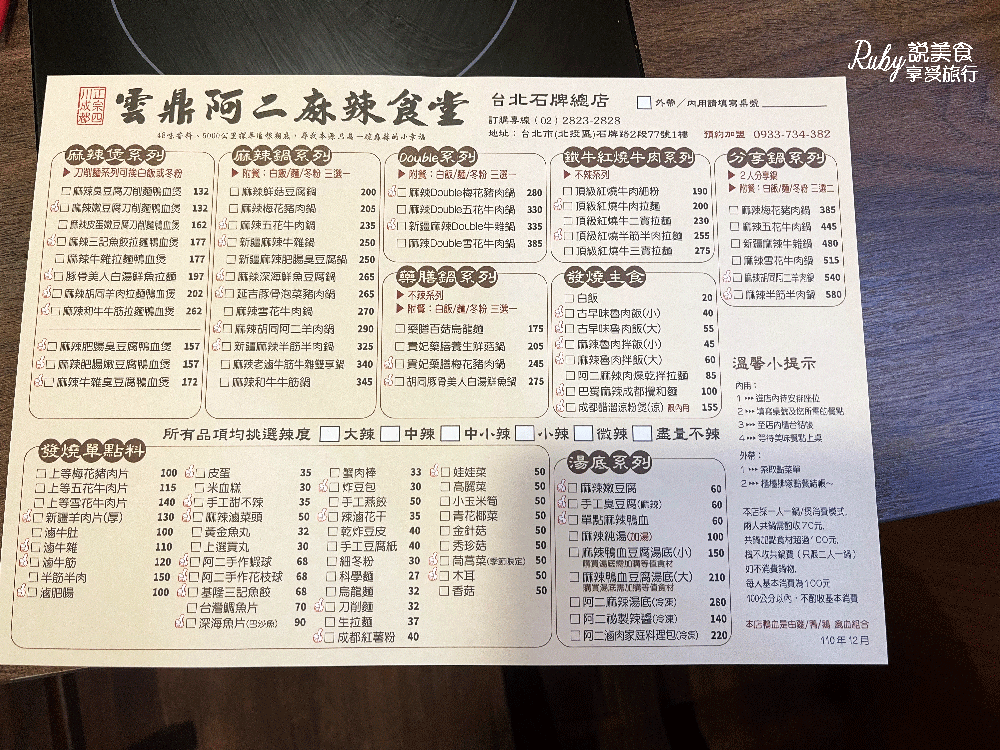 Ruby說美食
享受旅行
正宗四川成都
雲鼎阿二麻辣食堂
台北石牌總店
外帶/內用請填寫桌號
訂購專線 (02) 2823-2828
地址:台北市(北投區)石牌路2段77號1樓 預約加盟 0933-734-382
麻辣煲系列
▶ 刀削麵系列可換白飯或冬粉
麻辣臭豆腐刀削麵鴨血煲 132
麻辣嫩豆腐刀削麵鴨血煲 132
麻辣皮蛋嫩豆腐刀削麵鴨血煲 162
麻辣三記魚餃拉麵鴨血煲 177
麻辣牛雜拉麵鴨血煲 177
豚骨美人白湯鮮魚拉麵 197
麻辣胡同羊肉拉麵鴨血煲 202
麻辣和牛牛筋拉麵鴨血煲 262
麻辣肥腸臭豆腐鴨血煲 157
麻辣肥腸嫩豆腐鴨血煲 157
麻辣牛雜臭豆腐鴨血煲 172
麻辣鍋系列
▶ 附餐:白飯/麵/冬粉 三選一
麻辣鮮菇豆腐鍋 200
麻辣梅花豬肉鍋 205
麻辣五花牛肉鍋 235
新疆麻辣牛雜鍋 250
新疆麻辣肥腸臭豆腐鍋 250
麻辣深海鮮魚豆腐鍋 265
延吉豚骨泡菜豬肉鍋 265
麻辣雪花牛肉鍋 270
麻辣胡同阿二羊肉鍋 290
新疆麻辣羊筋半肉鍋 325
麻辣老滷牛筋牛雜雙享鍋 340
麻辣和牛牛筋鍋 345
Double系列
▶ 附餐:白飯/麵/冬粉 三選一
麻辣Double梅花豬肉鍋 280
麻辣Double五花牛肉鍋 330
新疆麻辣Double牛雜鍋 335
麻辣Double雪花牛肉鍋 385
藥膳鍋系列
▶ 不辣系列
▶ 附餐:白飯/麵/冬粉 三選一
藥膳百菇烏龍麵 175
貴妃藥膳養生鮮菇鍋 205
貴妃藥膳梅花豬肉鍋 245
胡同豚骨美人白湯鮮魚鍋 275
鐵牛紅燒牛肉系列
▶ 不辣系列
頂級紅燒牛肉細粉 190
頂級紅燒牛肉拉麵 200
頂級紅燒牛二寶拉麵 230
頂級紅燒半筋半肉拉麵 255
頂級紅燒牛三寶拉麵 275
發燒主食
白飯 20
古早味魯肉飯(小) 40
古早味魯肉飯(大) 55
麻辣魯肉拌飯(小) 45
麻辣魯肉拌飯(大) 60
阿二麻辣肉燥乾拌拉麵 85
巴蜀麻辣成都攪和麵 100
成都醋溜涼粉煲(涼) 限內用 155
分享鍋系列
▶ 2人分享鍋
▶ 附餐:白飯/麵/冬粉 三選二
麻辣梅花豬肉鍋 385
麻辣五花牛肉鍋 445
新疆麻辣牛雜鍋 480
麻辣雪花牛肉鍋 515
麻辣胡同阿二羊肉鍋 540
麻辣半筋半肉鍋 580
溫馨小提示
內用:
1 進店內待安排座位
2 填寫桌號及您所需的餐點
3 至店內櫃台結帳
4 等待美味餐點上桌
外帶:
1 索取點菜單
2 櫃檯排隊點餐結帳~
本店採一人一鍋/煲消費模式,
兩人共鍋需酌收70元,
共鍋加點食材超過100元,
橫不收共鍋費(只限二人一鍋)
如不消費鍋物,
每人基本消費為100元
100公分以內,不酌收基本消費
本店鴨血是由雞/鴨/鵝 禽血組合
110年12月
所有品項均挑選辣度 大辣 中辣 中小辣 小辣 微辣 盡量不辣
發燒單點料
上等梅花豬肉片 100
上等五花牛肉片 115
上等雪花牛肉片 140
新疆羊肉片(厚) 130
滷牛肚 100
滷牛雜 110
滷牛筋 120
半筋半肉 150
滷肥腸 100
皮蛋 35
米血糕 30
手工甜不辣 35
麻辣滷菜頭 50
黃金魚丸 32
上選貢丸 30
阿二手作蝦球 68
阿二手作花枝球 68
基隆三記魚餃 68
台灣鯛魚片 70
深海魚片(巴沙魚) 90
蟹肉棒 33
炸豆包 30
手工燕餃 50
辣滷花干 35
乾炸豆皮 40
手工豆腐紙 40
細冬粉 30
科學麵 27
烏龍麵 32
刀削麵 32
生拉麵 37
成都紅薯粉 40
娃娃菜 50
高麗菜 50
小玉米筍 50
青花椰菜 50
金針菇 50
秀珍菇 50
茼萵菜(季節限定) 50
木耳 50
香菇 50
湯底系列
麻辣嫩豆腐 60
手工臭豆腐(麻辣) 60
單點麻辣鴨血 60
麻辣純湯(加湯) 100
麻辣鴨血豆腐湯底(小) 150
購買湯底需加購等值食材
麻辣鴨血豆腐湯底(大) 210
購買湯底需加購等值食材
阿二麻辣湯底(冷凍) 280
阿二祕製辣醬(冷凍) 140
阿二滷肉家庭料理包(冷凍) 220